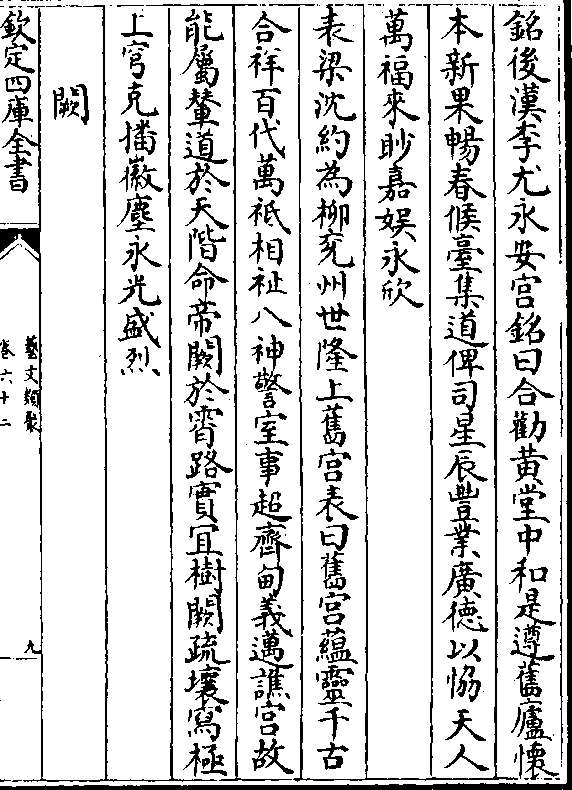 銘後漢李尤永安宫銘曰合勸黄堂中和是遵舊廬懷
本新果暢春候臺集道俾司星辰豐業廣德以恊天人
萬福來眇嘉娛永欣
表梁沈約為柳兖州世隆上舊宫表曰舊宫藴靈千古
合祥百代萬祇相祉八神警室事超齊甸義邁譙宫故
能屬輦道於天階命帝闕於霄路實宜樹闕疏壤寫極
上穹克播徽塵永光盛烈
闕
欽定四庫全書
藝文類聚
卷六十二
九